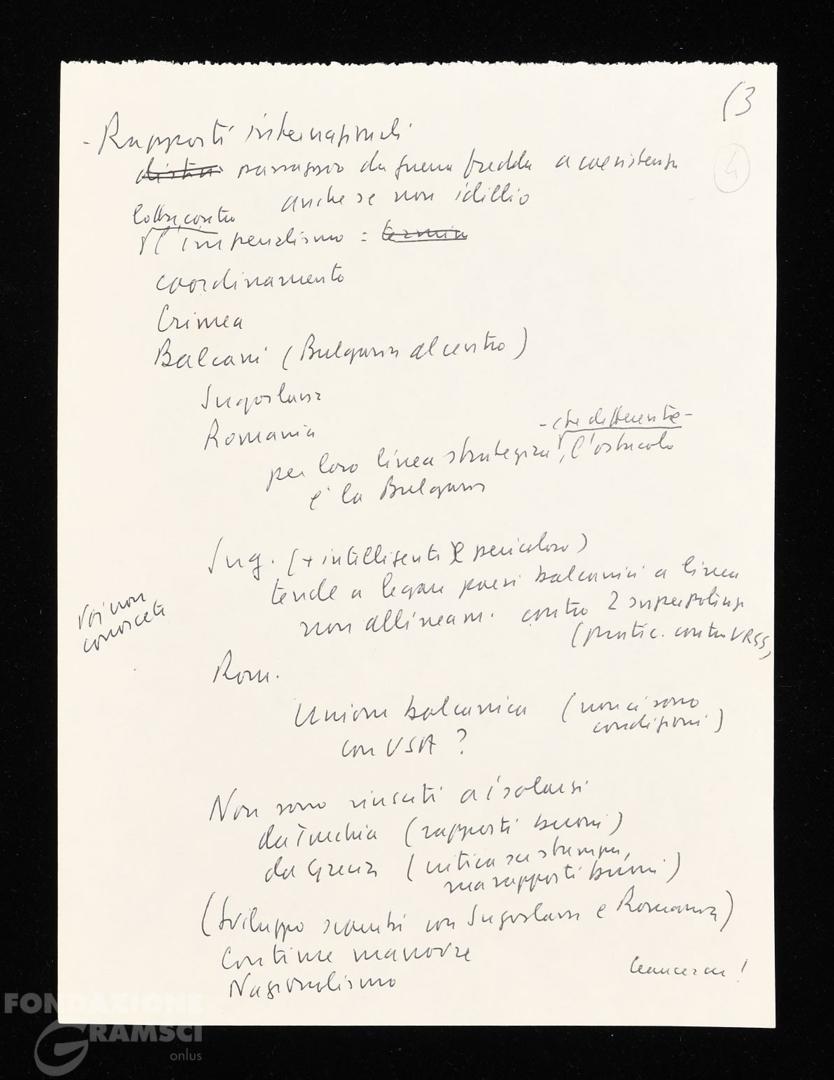 (3
4
- Rapporti internazionali
passaggio da guerra fredda a coesistenza
anche se non idillio
lotta contro
l'imperialismo =
coordinamento
Crimea
Balcani (Bulgaria al centro)
Jugoslavia
Romania
- che differente -
per loro linea strategica, l'ostacolo
è la Bulgaria
Jug. (+ intelligente e pericoloso)
tende a legare paesi balcanici a linea
non allineam. contro 2 superpotenze
(pratic. contro URSS)
Voi non
conoscete
Rom.
Unione balcanica (non ci sono
condizioni)
con USA ?
Non sono riusciti a isolarsi
da Turchia (rapporti buoni)
da Grecia (critica su stampa,
ma rapporti buoni)
(Sviluppo scambi con Jugoslavia e Romania)
Continue manovre
Nazionalismo
FONDAZIONE
GRAMSCI
onlus